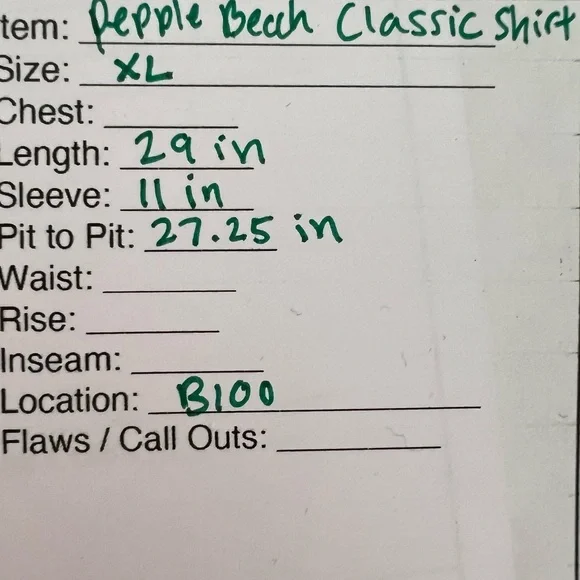 tem: Pepple Beach Classic Shirt
Size: XL
Chest:
Length: 29 in
Sleeve: 11 in
Pit to Pit: 27.25 in
Waist:
Rise:
Inseam:
Location: B100
Flaws / Call Outs: